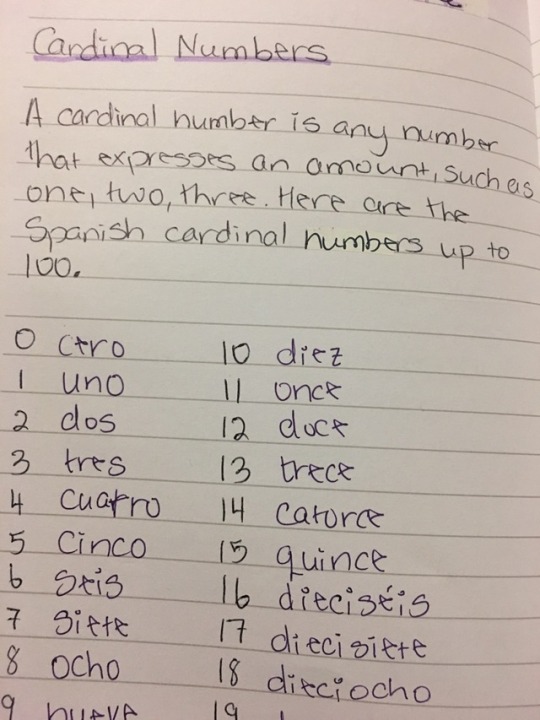 Cardinal Numbers
A cardinal number is any number
that expresses an amount, such as
one, two, three. Here are the
Spanish cardinal numbers up to
100.
0 cero 10 diez
1 uno 11 once
2 dos 12 doce
3 tres 13 trece
4 cuatro 14 catorce
5 cinco 15 quince
6 seis 16 dieciséis
7 siete 17 diecisiete
8 ocho 18 dieciocho
9 nueve 19